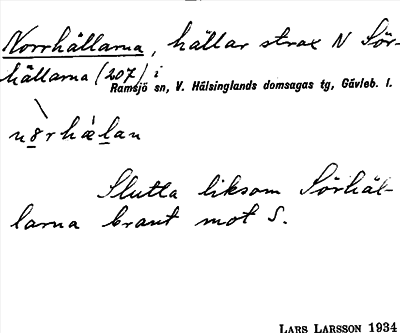 Norrhällarna, hällar strax N Sör-
hällarna (207) i
Ramsjö sn, V. Hälsinglands domsagas tg, Gävleb. l.
n8rhælan
Slutta liksom Sörhäl-
larna brant mot S.
LARS LARSSON 1934